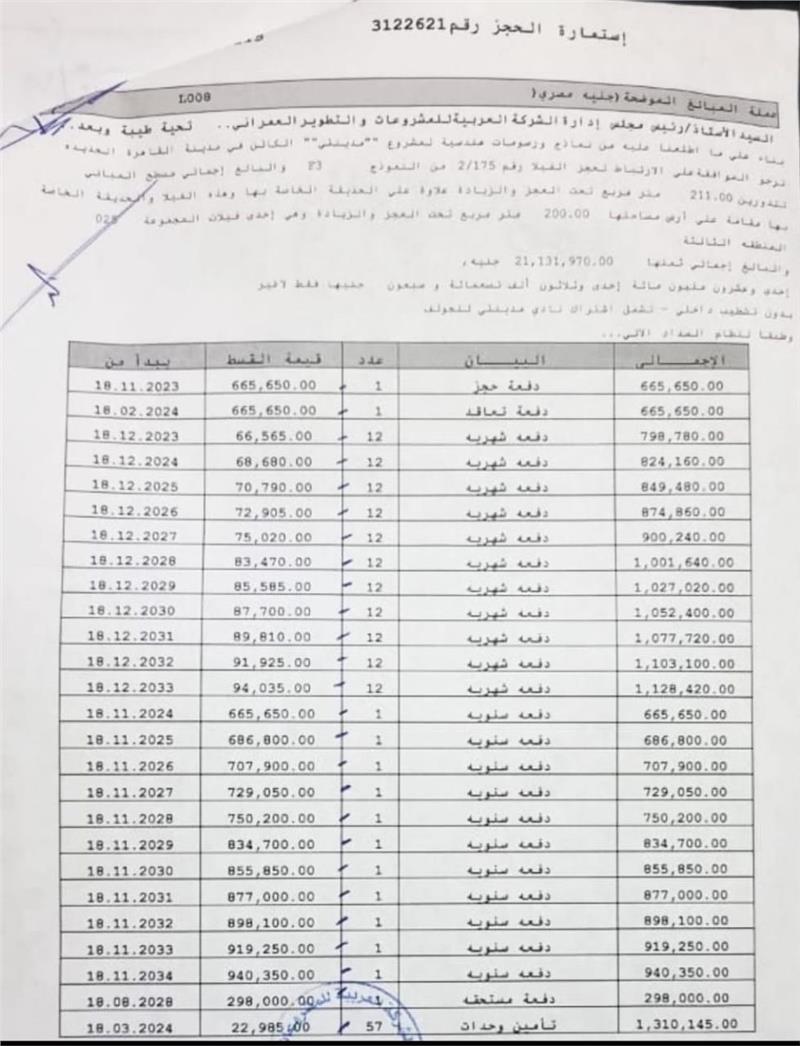 إستمارة الحجز رقم 3122621
عملة المبالغ الموضحة (جنيه مصري) L008
السيد الأستاذ/رئيس مجلس إدارة الشركة العربية للمشروعات والتطوير العمراني.. تحية طيبة وبعد..
بناء على ما اطلعنا عليه من نماذج ورسومات هندسية لمشروع ""مدينتي"" الكائن في مدينة القاهرة الجديدة
نرجو الموافقة على الارتباط لحجز الفيلا رقم 2/175 من النموذج F3 والبالغ إجمالي مسطح المباني
للدورين 211.00 متر مربع تحت العجز والزيادة علاوة على الحديقة الخاصة بها وهذه الفيلا والحديقة الخاصة
بها مقامة على أرض مساحتها 200.00 متر مربع تحت العجز والزيادة وهي إحدى فيلات المجموعة 028
المنطقه الثالثة
والبالغ إجمالي ثمنها 21,131,970.00 جنيه,
إحدى وعشرون مليون مائة إحدى وثلاثون ألف تسعمائة و سبعون جنيها فقط لاغير
بدون تشطيب داخلى - تشمل اشتراك نادي مدينتي للجولف
وطبقا لنظام السداد الآتي...
الإجمـــالى البيـــان عدد قيمة القسط يبدأ من
665,650.00 دفعة حجز 1 665,650.00 18.11.2023
665,650.00 دفعة تعاقد 1 665,650.00 18.02.2024
798,780.00 دفعه شهريه 12 66,565.00 18.12.2023
824,160.00 دفعه شهريه 12 68,680.00 18.12.2024
849,480.00 دفعه شهريه 12 70,790.00 18.12.2025
874,860.00 دفعه شهريه 12 72,905.00 18.12.2026
900,240.00 دفعه شهريه 12 75,020.00 18.12.2027
1,001,640.00 دفعه شهريه 12 83,470.00 18.12.2028
1,027,020.00 دفعه شهريه 12 85,585.00 18.12.2029
1,052,400.00 دفعه شهريه 12 87,700.00 18.12.2030
1,077,720.00 دفعه شهريه 12 89,810.00 18.12.2031
1,103,100.00 دفعه شهريه 12 91,925.00 18.12.2032
1,128,420.00 دفعه شهريه 12 94,035.00 18.12.2033
665,650.00 دفعه سنويه 1 665,650.00 18.11.2024
686,800.00 دفعه سنويه 1 686,800.00 18.11.2025
707,900.00 دفعه سنويه 1 707,900.00 18.11.2026
729,050.00 دفعه سنويه 1 729,050.00 18.11.2027
750,200.00 دفعه سنويه 1 750,200.00 18.11.2028
834,700.00 دفعه سنويه 1 834,700.00 18.11.2029
855,850.00 دفعه سنويه 1 855,850.00 18.11.2030
877,000.00 دفعه سنويه 1 877,000.00 18.11.2031
898,100.00 دفعه سنويه 1 898,100.00 18.11.2032
919,250.00 دفعه سنويه 1 919,250.00 18.11.2033
940,350.00 دفعه سنويه 1 940,350.00 18.11.2034
298,000.00 دفعة مستحقه 1 298,000.00 18.08.2028
1,310,145.00 تأمين وحدات 57 22,985.00 18.03.2024